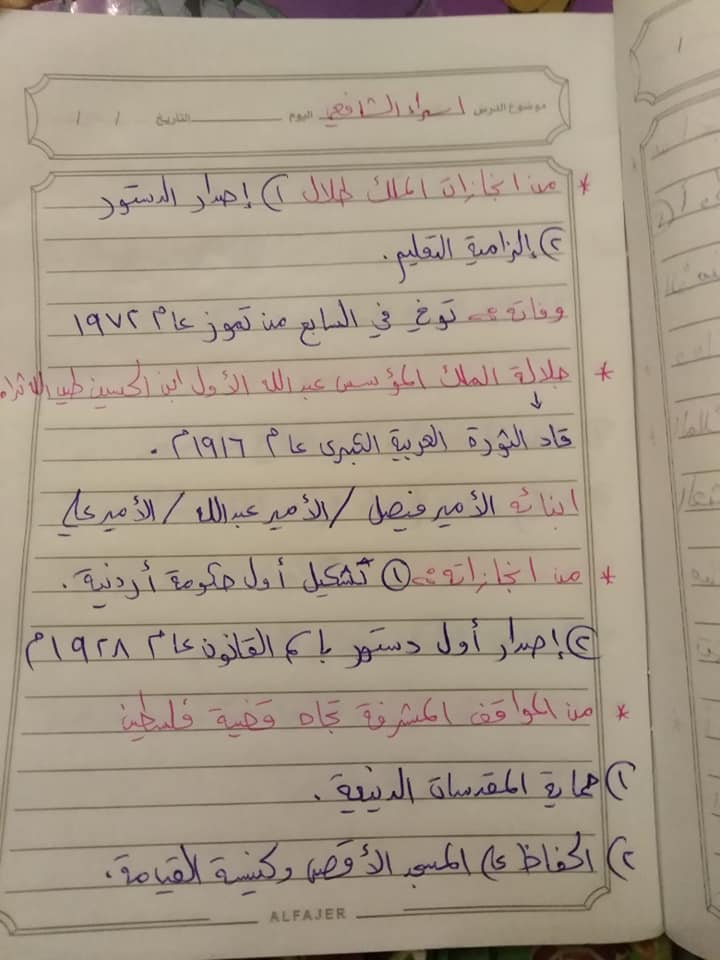 موضوع الدرس اسراء الشافعي اليوم التاريخ / /
* من انجازات الملك طلال ١) إصدار الدستور
٢) إلزامية التعليم.
وفاته توفي في السابع من تموز عام ١٩٧٢
* جلالة الملك المؤسس عبدالله الأول ابن الحسين طيب الله ثراه
↓
قاد الثورة العربية الكبرى عام ١٩١٦م.
ابنائه الأمير فيصل / الأمير عبدالله / الأمير علي
* من انجازاته ① تشكيل أول حكومة أردنية.
② إصدار أول دستور باسم القانون عام ١٩٢٨م
* من المواقف المشرفة تجاه قضية فلسطين
١) حماية المقدسات الدينية.
٢) الحفاظ على المسجد الأقصى وكنيسة القيامة.
ALFAJER